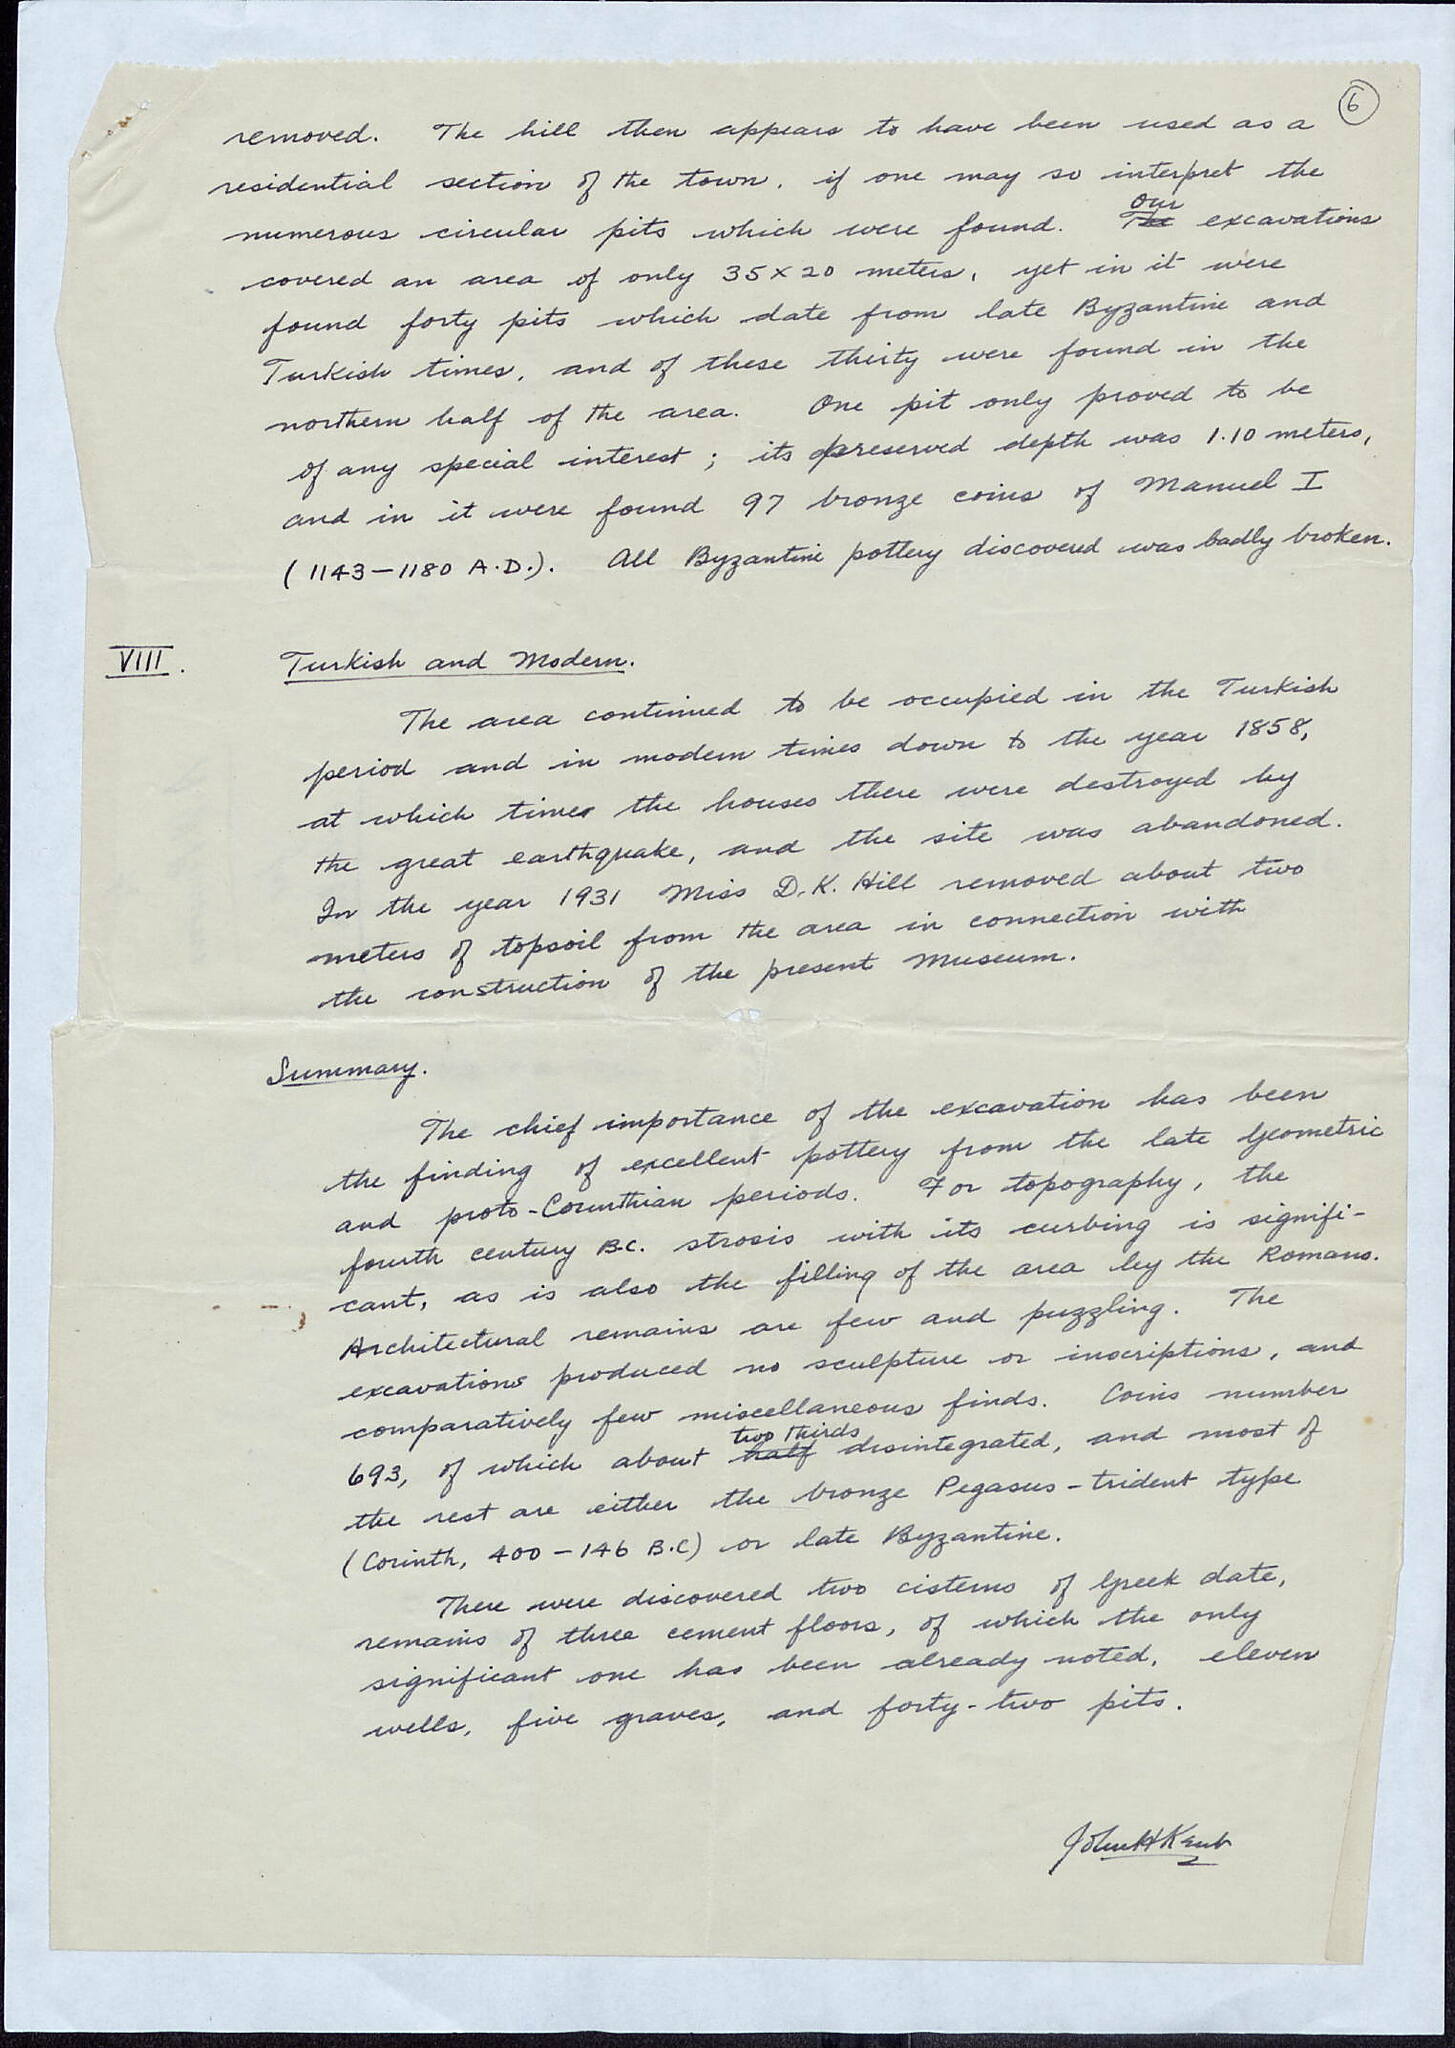 6
removed. The hill then appears to have been used as a
residential section of the town, if one may so interpret the
Our
numerous circular pits which were found. The excavations
covered an area of only 35 x 20 meters, yet in it were
found forty pits which date from late Byzantine and
Turkish times, and of these thirty were found in the
northern half of the area. One pit only proved to be
of any special interest; its preserved depth was 1.10 meters,
and in it were found 97 bronze coins of Manuel I
(1143-1180 A.D.). All Byzantine pottery discovered was badly broken.
VIII. Turkish and Modern.
The area continued to be occupied in the Turkish
period and in modern times down to the year 1858,
at which time the houses there were destroyed by
the great earthquake, and the site was abandoned.
In the year 1931 Miss D.K. Hill removed about two
meters of topsoil from the area in connection with
the construction of the present Museum.
Summary.
The chief importance of the excavation has been
the finding of excellent pottery from the late Geometric
and proto-Corinthian periods. For topography, the
fourth century B.C. strosis with its curbing is signifi-
cant, as is also the filling of the area by the Romans.
Architectural remains are few and puzzling. The
excavations produced no sculpture or inscriptions, and
comparatively few miscellaneous finds. Coins number
two thirds
693, of which about half disintegrated, and most of
the rest are either the bronze Pegasus-trident type
(Corinth, 400-146 B.C) or late Byzantine.
There were discovered two cisterns of Greek date,
remains of three cement floors, of which the only
significant one has been already noted, eleven
wells, five graves, and forty-two pits.
John H Kent